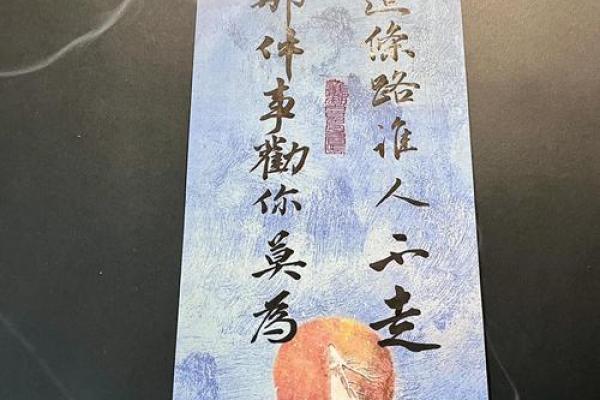 這條路誰人不走
那件事勸你莫為